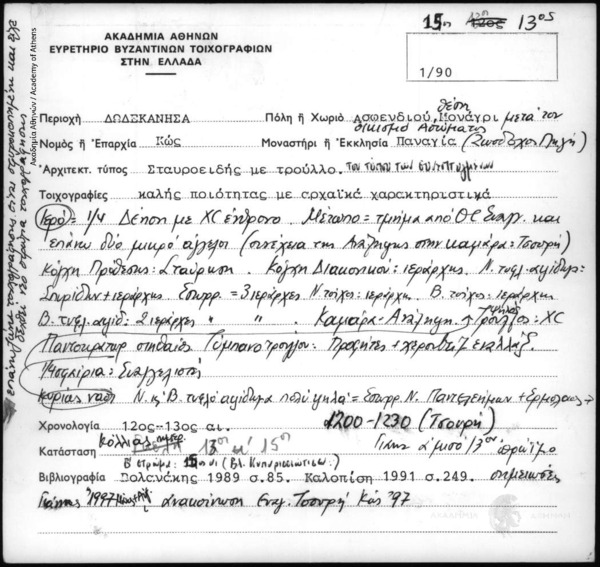 15ος 12ος 13ος
ΑΚΑΔΗΜΙΑ ΑΘΗΝΩΝ
ΕΥΡΕΤΗΡΙΟ ΒΥΖΑΝΤΙΝΩΝ ΤΟΙΧΟΓΡΑΦΙΩΝ
ΣΤΗΝ ΕΛΛΑΔΑ
1/90
Ακαδημία Αθηνών / Academy of Athens
θέση
Περιοχή ΔΩΔΕΚΑΝΗΣΑ Πόλη ή Χωριό Ασφενδιού, Μονάγρι μετά τον
οικισμό Ασώματος
Νομός ή Επαρχία Κώς Μοναστήρι ή Εκκλησία Παναγία (Ζωοδόχος Πηγή)
Αρχιτεκτ. τύπος Σταυροειδής με τρούλλο. του τύπου των συνεπτυγμένων
Τοιχογραφίες καλής ποιότητας με αρχαϊκά χαρακτηριστικά
Ιερό = 1/4 Δέηση με ΧC ένθρονο Μέτωπο = τμήμα από Θ.C Ευαγγ. και
επάνω δύο μικροί άγγελοι (συνέχεια της Ανάληψης στην καμάρα: Τσουρή)
Κόγχη Πρόθεσης: Σταύρωση. Κόγχη Διακονικού: ιεράρχης. Ν. τυφλ. αψίδωμ:
Σπυρίδων + ιεράρχης. Εσωρρ. = 3 ιεράρχες Ν τοίχος: ιεράρχη. Β. τοίχος: ιεράρχη
Β. τυφλ. αψίδ: 2 ιεράρχες " " . Καμάρα - Ανάληψη Τρούλλος: ΧC
Παντοκράτωρ στηθαίος Τύμπανο τρούλλου: Προφήτες + χερουβείμ εναλλάξ.
4 Σφαιρία: Ευαγγελιστές
Κυρίως ναός Ν. κ' Β. τυφλό αψίδωμα πολύ ψηλά = Εσωρρ. Ν. Παντελεήμων + Ερμόλαος
Χρονολογία 12ος-13ος αι. 1200-1230 (Τσουρή)
Κατάσταση 13ος κ' 15ος α' μισό 13ου
Β' στρώμα: 15ος αι (Βλ. )
Βιβλιογραφία Βολανάκης 1989 σ.85. Καλοπίση 1991 σ.249. σημειώσεις
1997 ανακοίνωση Ευαγ. Τσουρή Κώς '97